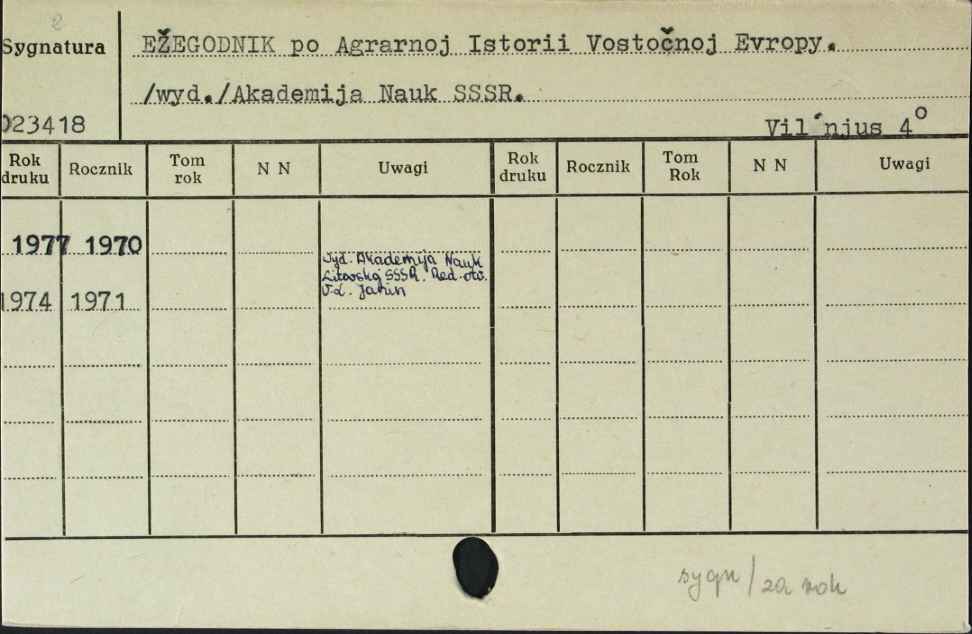 Sygnatura
EŽEGODNIK po Agrarnoj Istorii Vostočnoj Evropy.
/wyd./Akademija Nauk SSSR.
023418
Vil´njus 4°
Rok druku Rocznik Tom rok N N Uwagi Rok druku Rocznik Tom Rok N N Uwagi
1977 1970
Wyd. Akademija Nauk
Litovskoj SSSR. Red. otv.
1974 1971
sygn/za rok